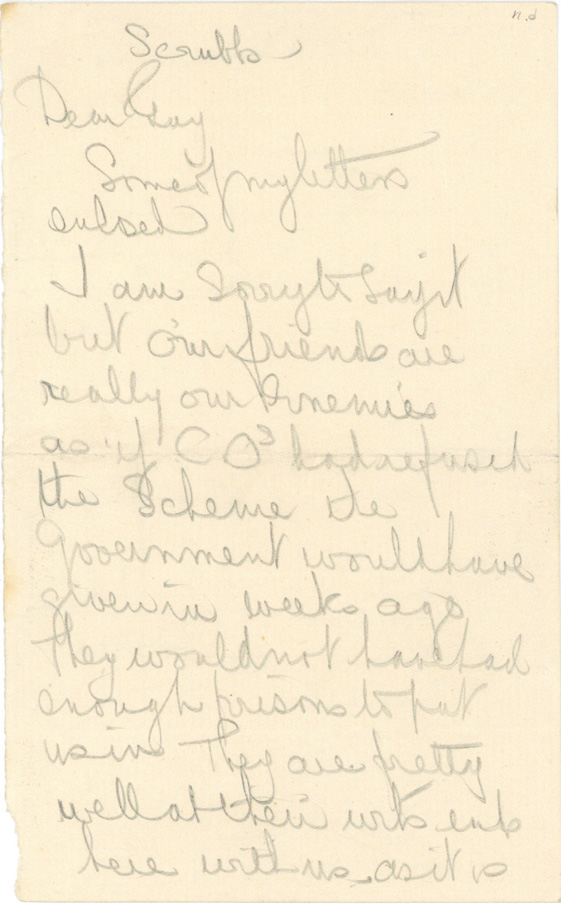 n.d
Scrubbs
Dear Gay
Some of my letters
enlosed
I am Sorry to Say it
but our friends are
really our Enemies
as if CO³ had refused
the Scheme the
Government would have
given in weeks ago
they would not have had
enough prisons to put
us in They are pretty
well at their wits ends
here with us, as it is